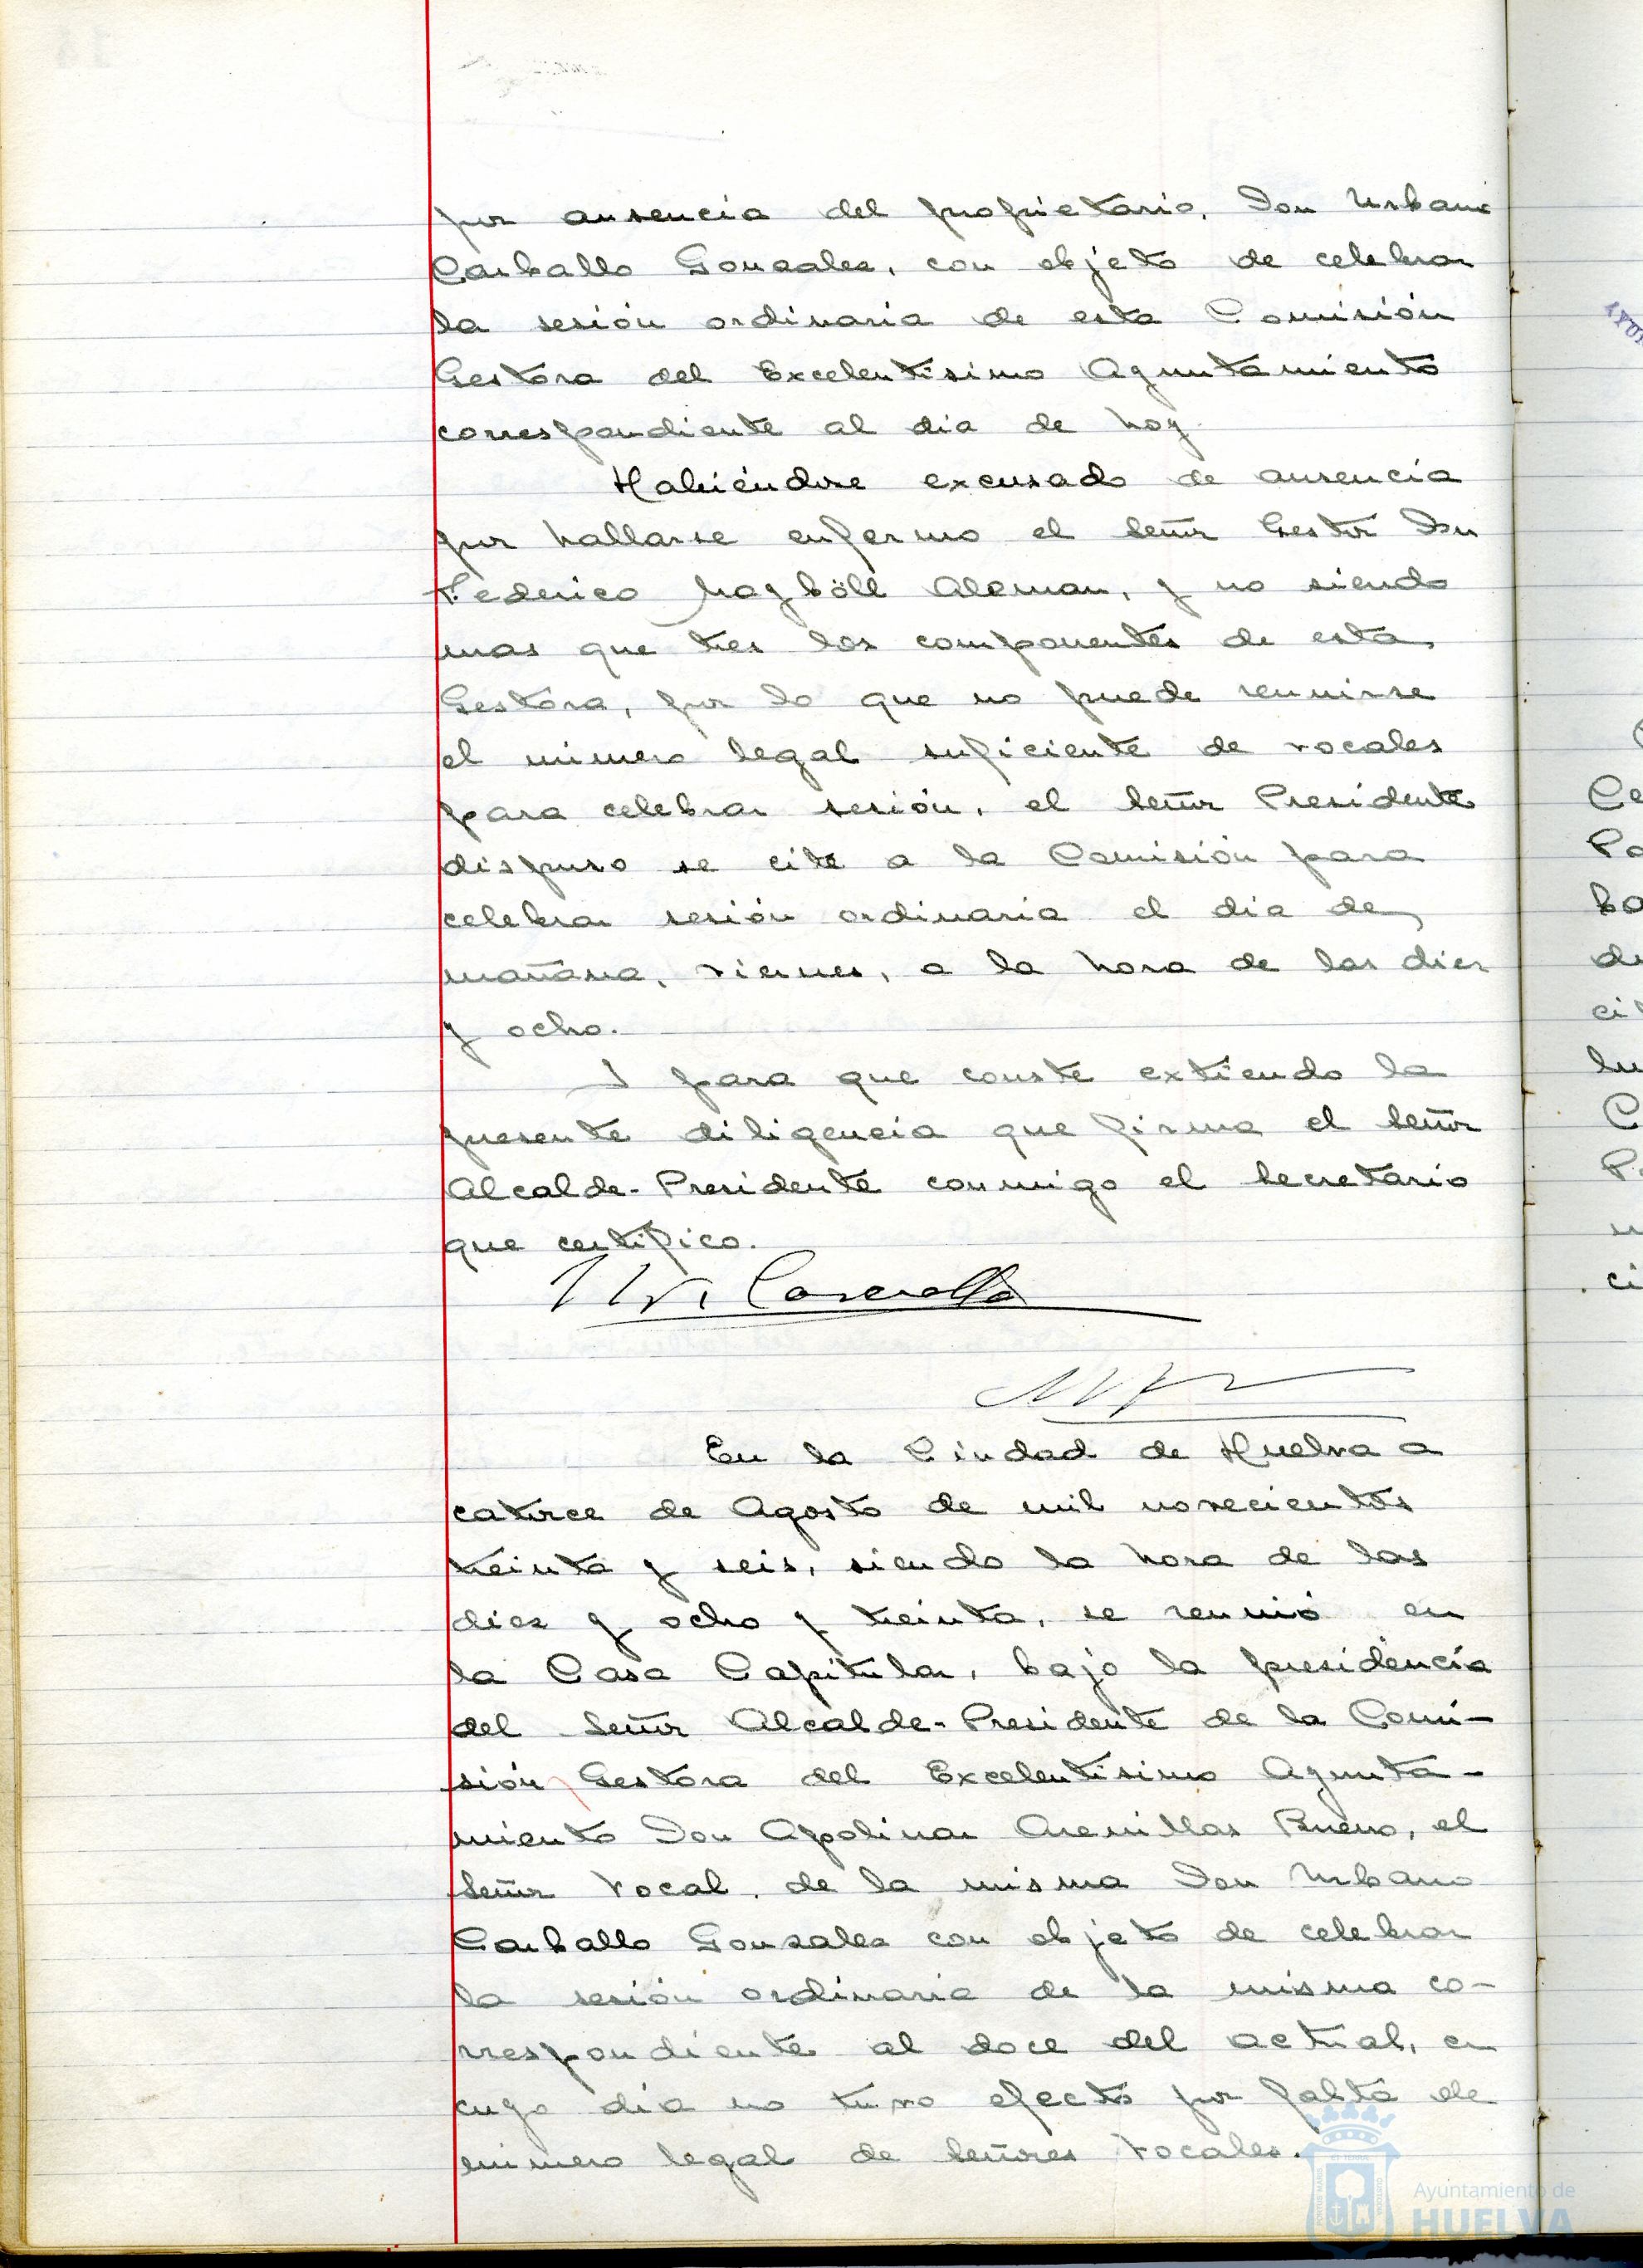 por ausencia del propietario, Don Urbano
Carballo Gonzalez, con objeto de celebrar
la sesión ordinaria de esta Comisión
Gestora del Excelentísimo Ayuntamiento
correspondiente al dia de hoy.
Habiéndose excusado de ausencia
por hallarse enfermo el Señor Gestor Don
Federico Mayböll Aleman, y no siendo
mas que tres los componentes de esta
Gestora, por lo que no puede reunirse
el número legal suficiente de vocales
para celebrar sesión, el Señor Presidente
dispuso se cite a la Comisión para
celebrar sesión ordinaria el dia de
mañana, viernes, a la hora de las diez
y ocho.
Y para que conste extiendo la
presente diligencia que firma el Señor
Alcalde-Presidente conmigo el Secretario
que certifico.
En la Ciudad de Huelva a
catorce de Agosto de mil novecientos
treinta y seis, siendo la hora de las
diez y ocho y treinta, se reunió en
la Casa Capitular, bajo la presidencia
del Señor Alcalde-Presidente de la Comi-
sión Gestora del Excelentísimo Ayunta-
miento Don Apolinar Arenillas Bueno, el
Señor Vocal de la misma Don Urbano
Carballo Gonzalez con objeto de celebrar
la sesión ordinaria de la misma co-
rrespondiente al doce del actual, en
cuyo día no tuvo efecto por falta de
número legal de Señores Vocales.
Ayuntamiento de
HUELVA